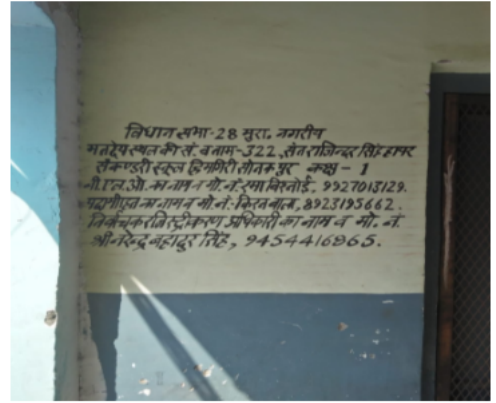 विधान सभा-28 मुरा. नगरीय
मतदेय स्थल की सं. व नाम-322, सेन्ट राजिन्दर सिंह हायर
सैकण्डरी स्कूल हिमगिरी सोनकपुर कक्ष - 1
बी.एल.ओ. का नाम व मो. नं. रमा विश्नोई, 9927013129.
पदाभीहित का नाम व मो. नं.- किरन बाला, 8923195662.
निर्वाचक रजिस्ट्रीकरण अधिकारी का नाम व मो. नं.
श्री नरेन्द्र बहादुर सिंह, 9454416865.